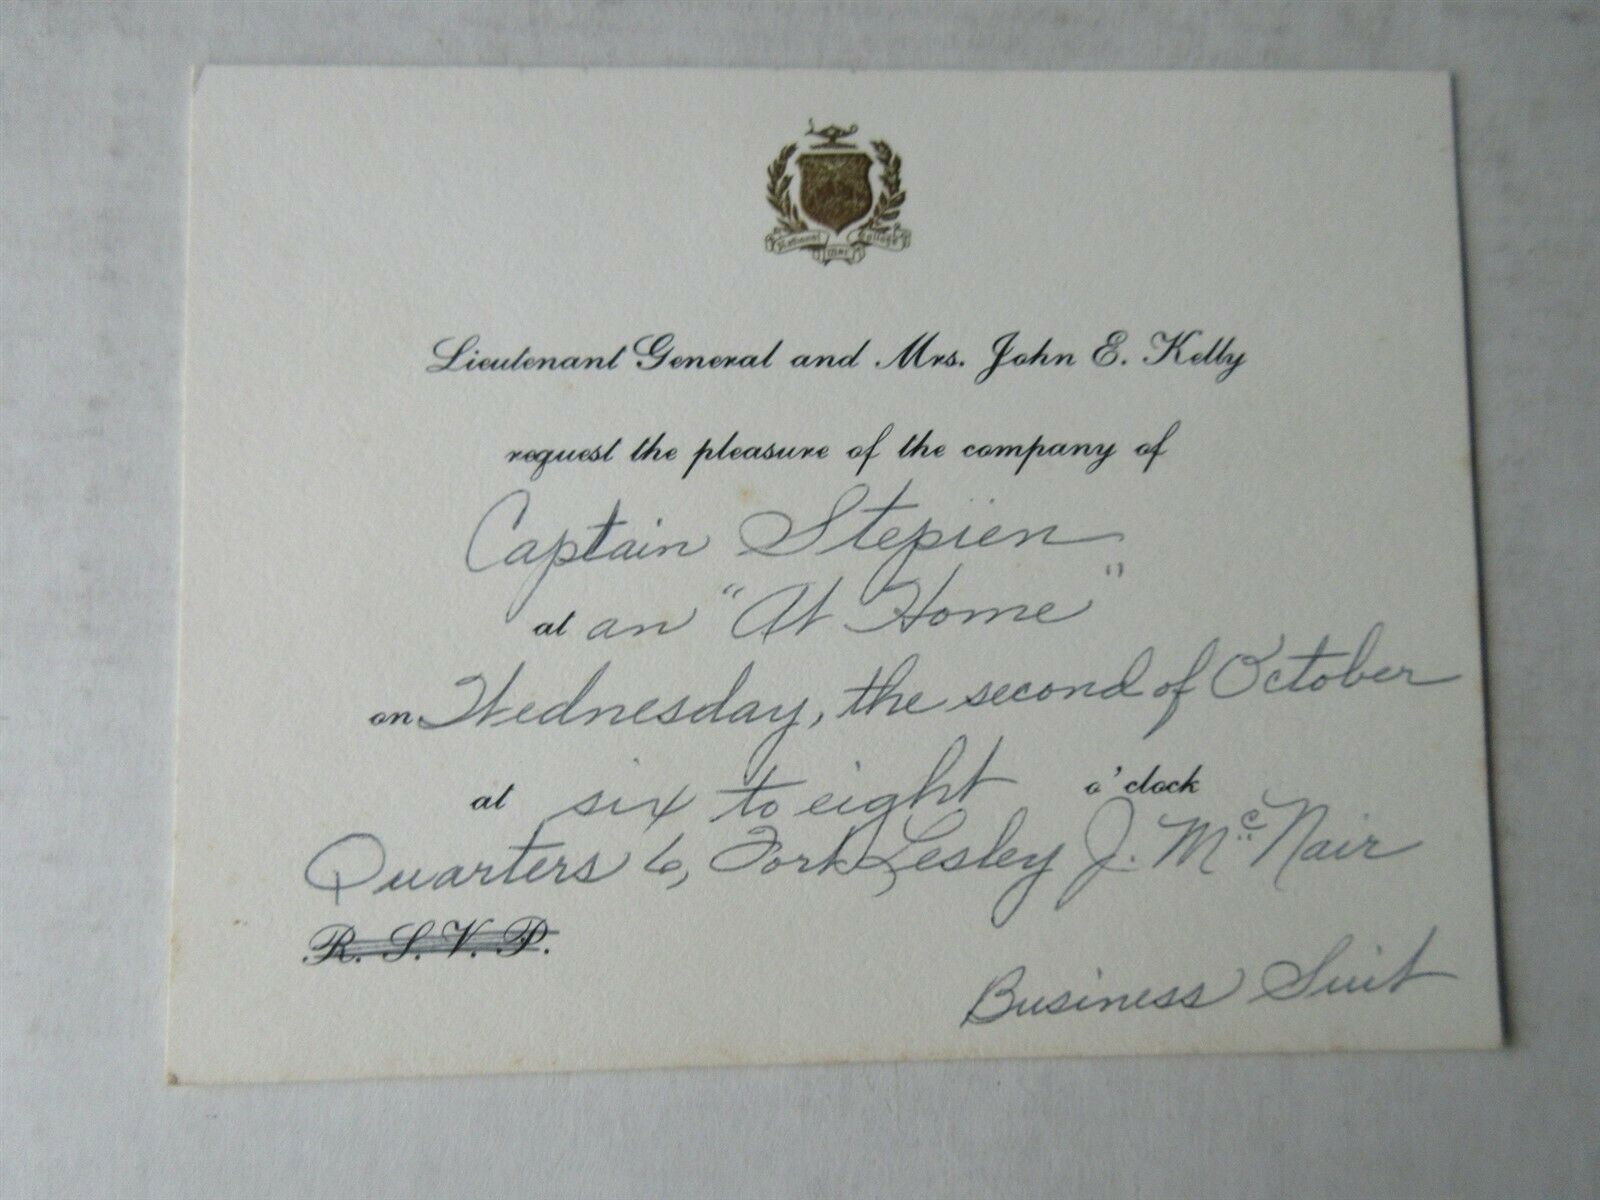 National War College
Lieutenant General and Mrs. John E. Kelly
request the pleasure of the company of
Captain Stepien
at an "At Home"
on Wednesday, the second of October
at six to eight o'clock
Quarters 6, Fort Lesley J. McNair
R. S. V. P.
Business Suit